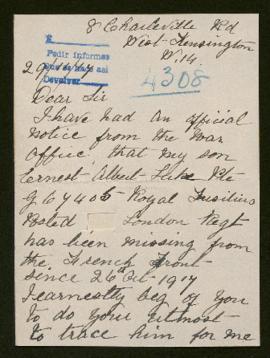 8 Charleville Rd
West Kensington
W. 14
Pedir informes
Devolver
4308
Dear Sir
I have had an official
notice from the War
Office, that my son
Ernest Albert Luke Pte
G 67405 Royal Fusiliers
Posted London Regt
has been missing from
the French Front
since 26th Oct - 1917
I earnestly beg of you
to do your utmost
to trace him for me